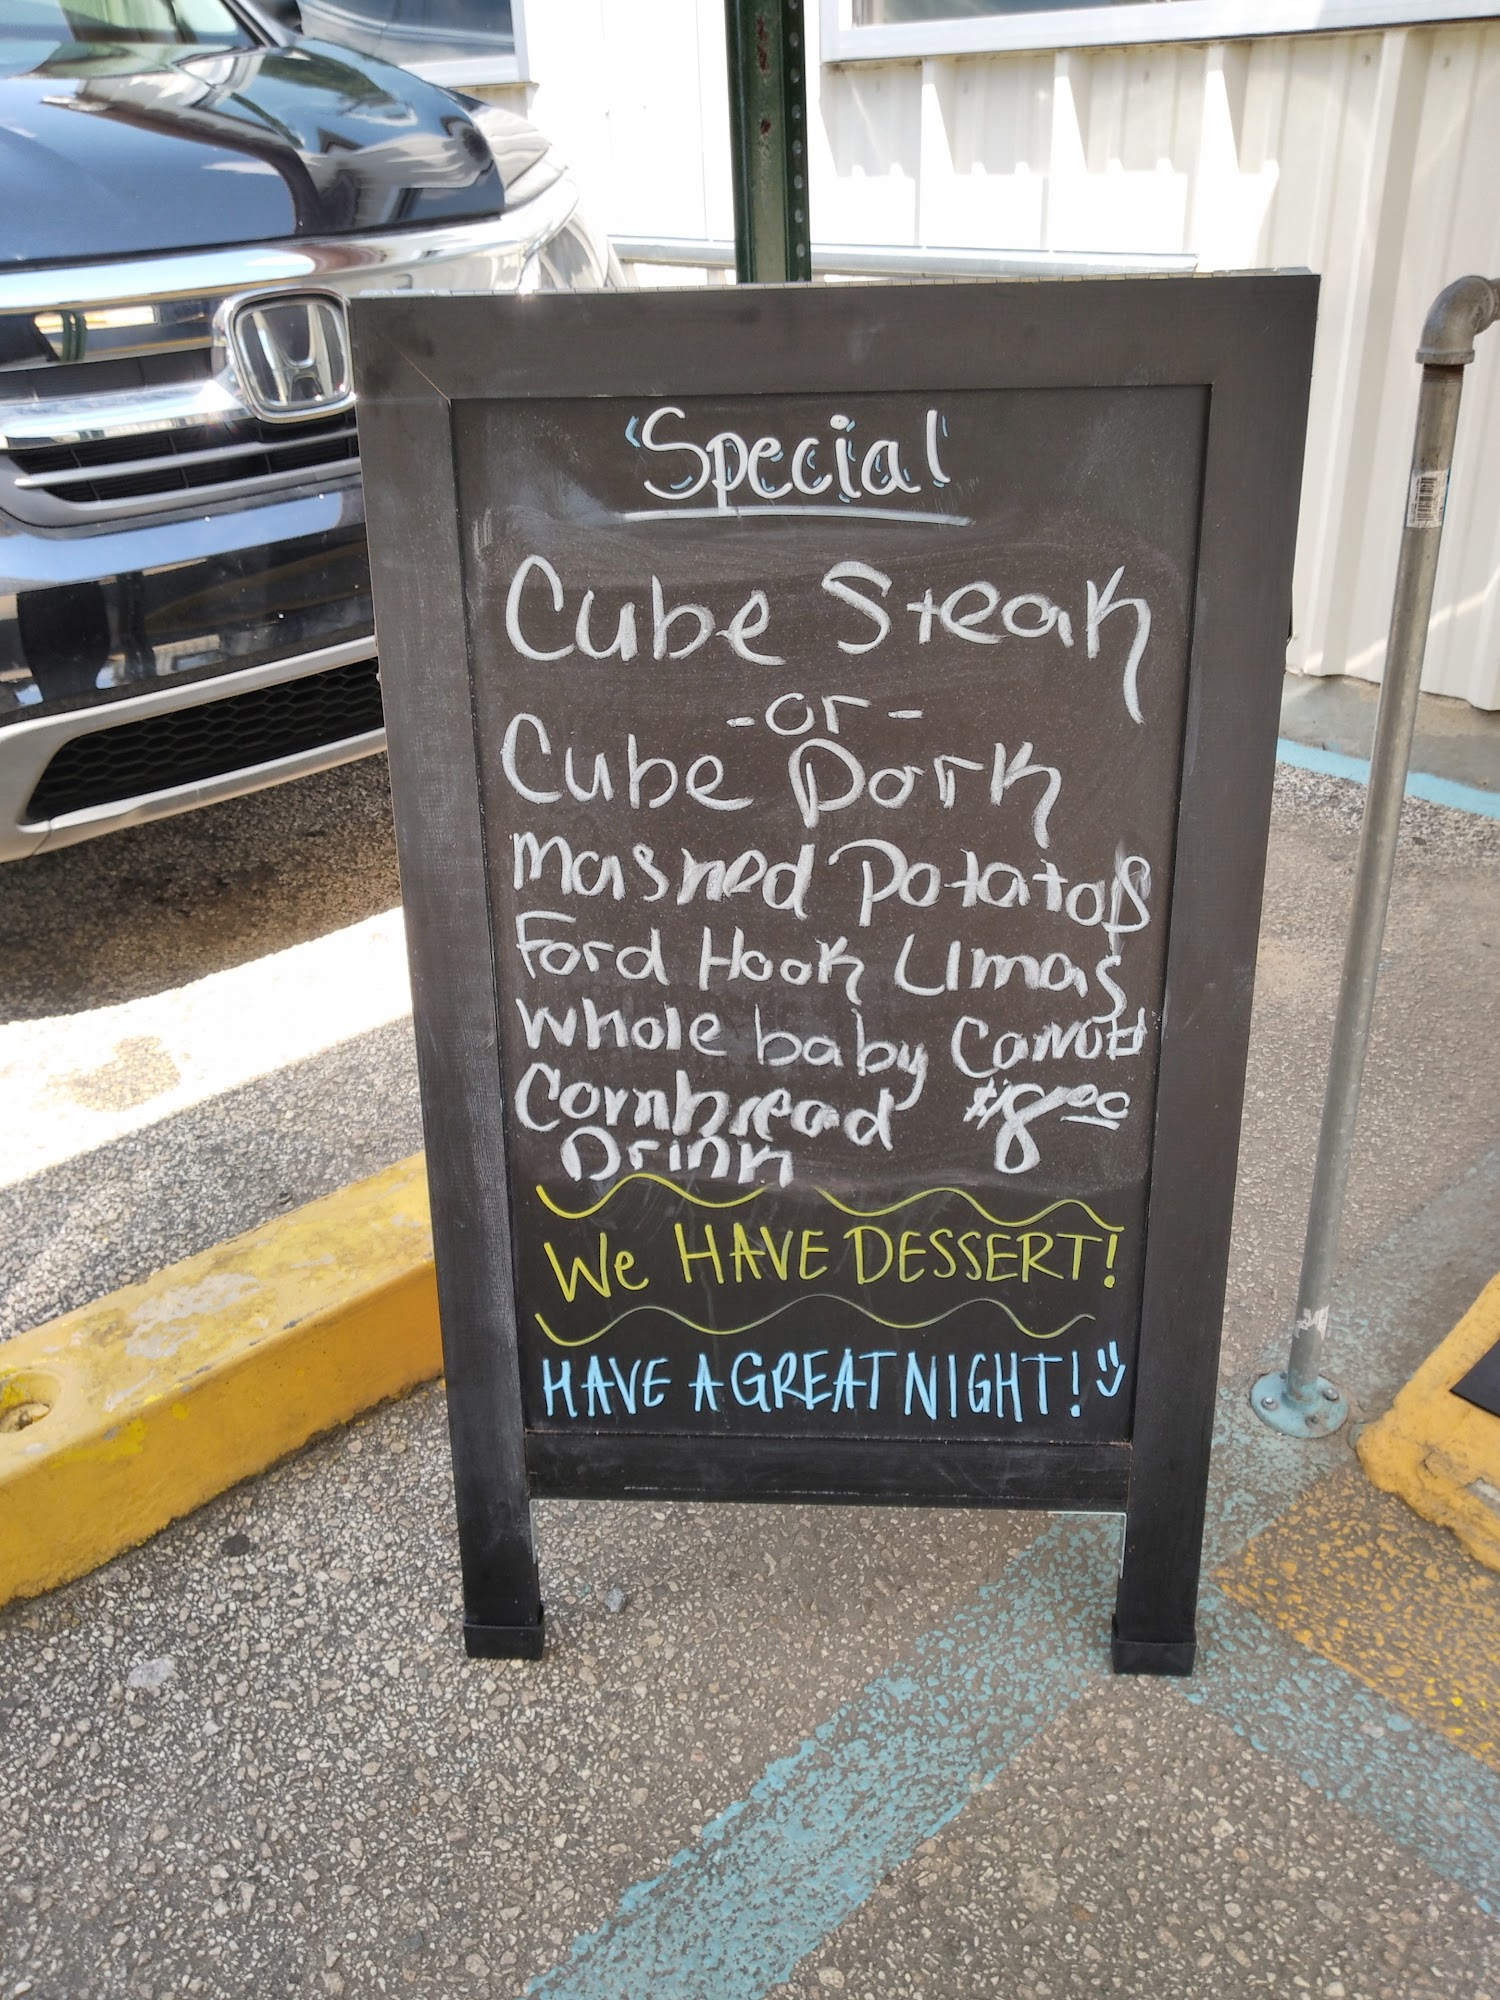 "Special"
Cube Steak
-or-
Cube Pork
mashed Potatos
Ford Hook Limas
Whole baby Carrots
Cornbread $8.00
Drink
We HAVE DESSERT!
HAVE A GREAT NIGHT!